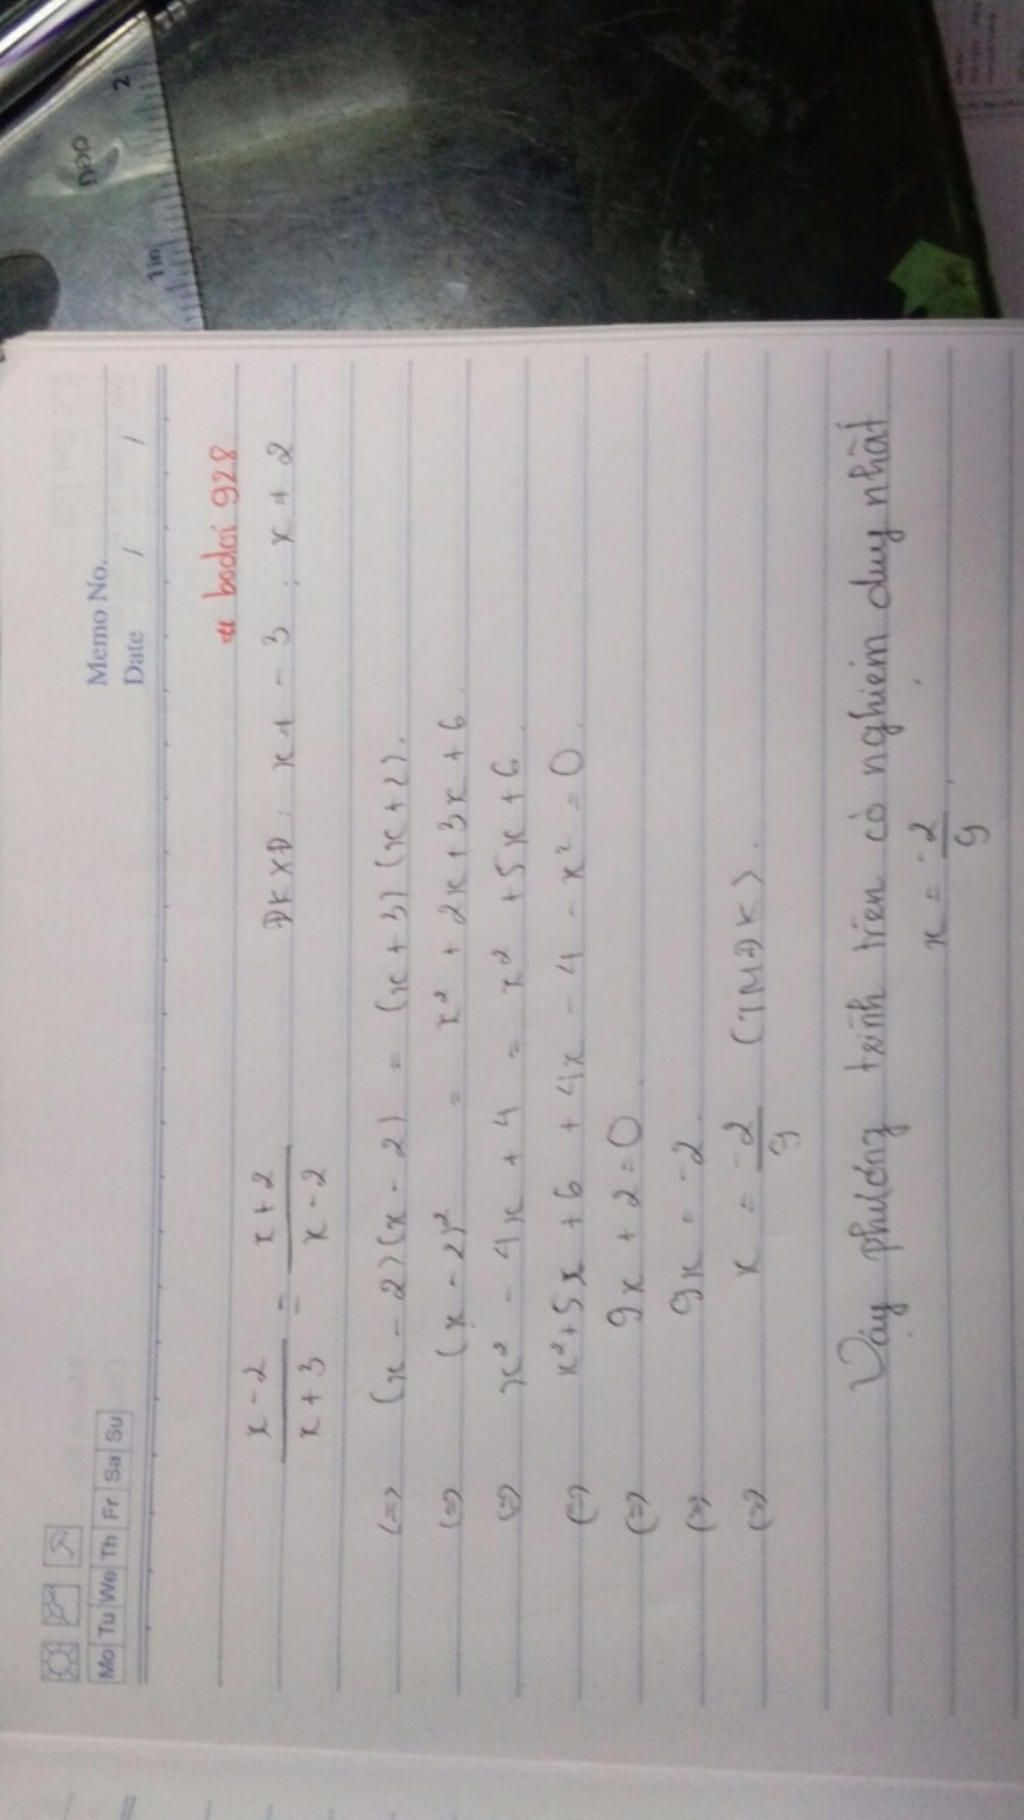 Memo No.
Mo Tu We Th Fr Sa Su
Date / /
bodoi 928
x - 2 / x + 3 = x + 2 / x - 2 ĐKXĐ : x ≠ - 3 ; x ≠ 2
(=) (x - 2)(x - 2) = (x + 3)(x + 2).
(=) (x - 2)² = x² + 2x + 3x + 6.
(=) x² - 4x + 4 = x² + 5x + 6.
(=) x² + 5x + 6 + 4x - 4 - x² = 0.
(=) 9x + 2 = 0.
(=) 9x = -2.
(=) x = -2 / 9 (TMĐK).
Vậy phương trình trên có nghiệm duy nhất
x = -2 / 9.
1in
2